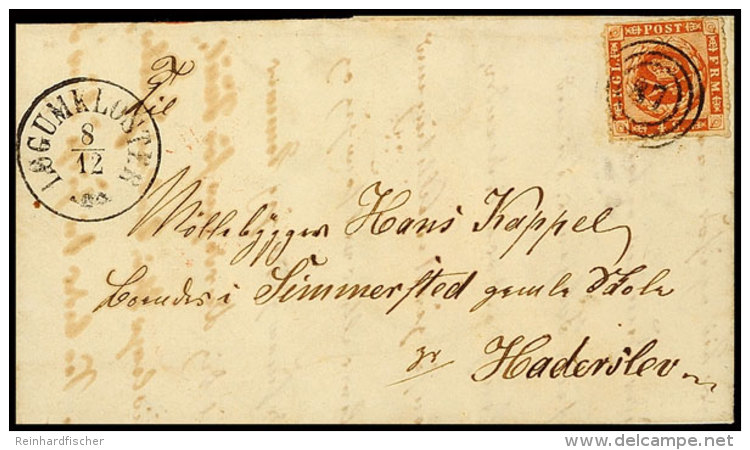 Til
LØGUMKLOSTER
8
12
KGL POST FRM
47
Möllebÿgger Hans Kappel
boendes i Simmersted gamle Skole
pr Haderslev
Reinhardfischer
delcampe.net